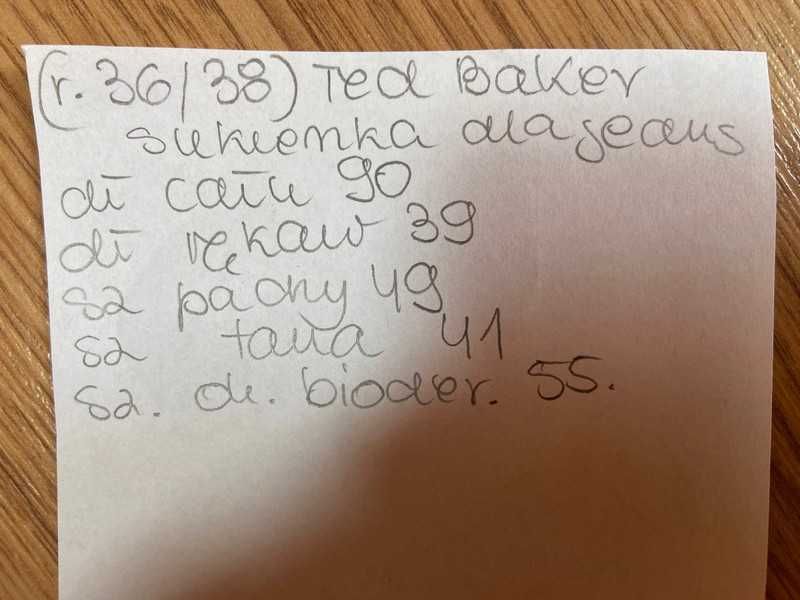 (r. 36/38) Ted Baker
sukienka ala jeans
dł całk 90
dł rękaw 39
sz pachy 49
sz talia 41
sz. dł. bioder. 55.